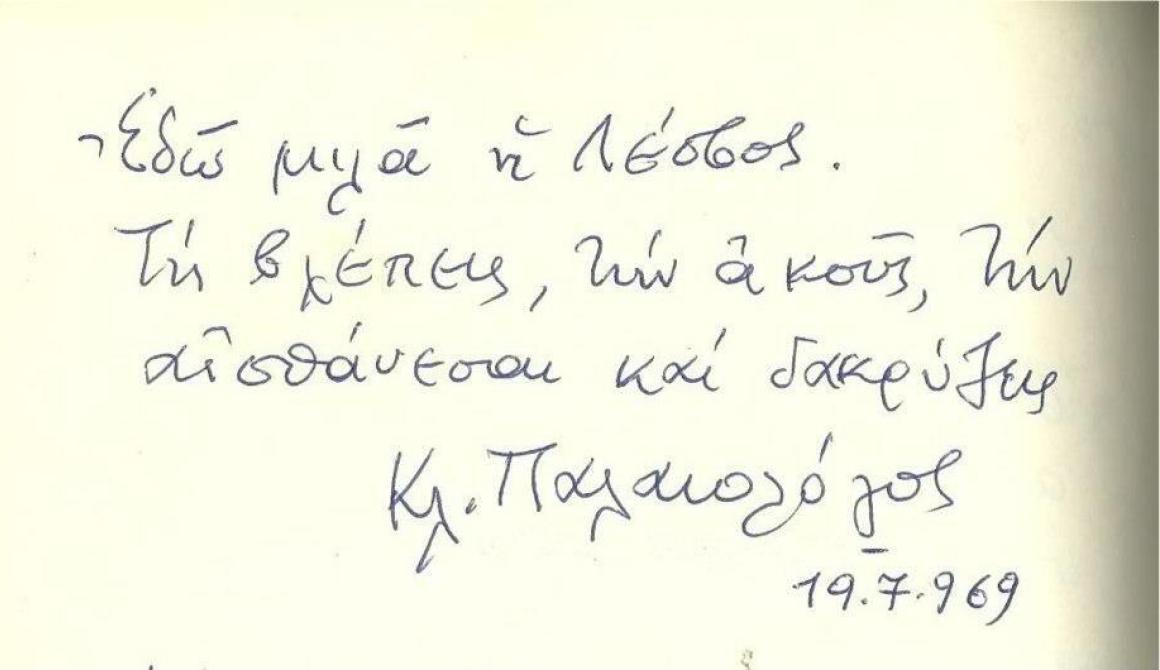 Ἐδῶ μιλᾶ ἡ Λέσβος.
Τή βλέπεις, τήν ἀκοῦς, τήν
αἰσθάνεσαι καί δακρύζεις
Κλ. Παλαιολόγος
19.7.969